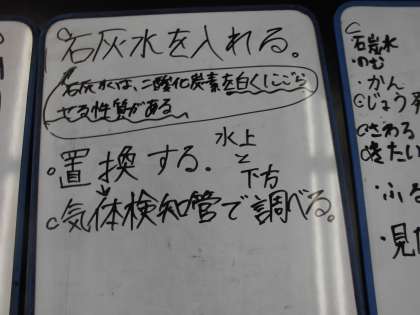 石灰水を入れる。
石灰水は、二酸化炭素を白くにごら
せる性質がある。
水上
と
下方
。置換する.
。気体検知管で調べる。
石炭水
・のむ
・かん
さわる
・ふ
・見